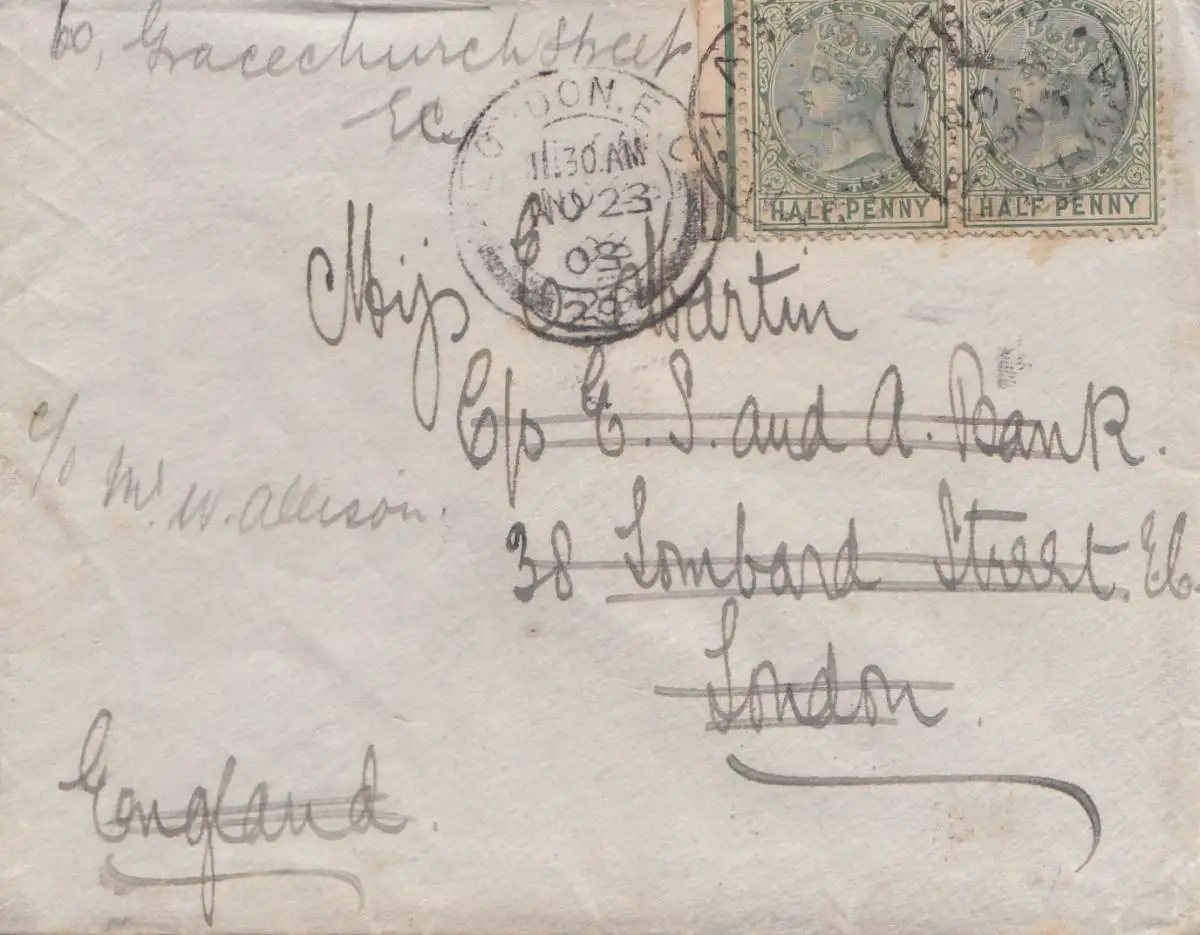 60, Gracechurch Street
E.C.
LAGOS LAGOS
POSTAGE POSTAGE
HALF PENNY HALF PENNY
LONDON. E.C.
11.30.AM
23
03
29
Miss Martin
C/o E. S. and A. Bank.
c/o Mr. W. Allison.
38 Lombard Street. EC.
London.
England.